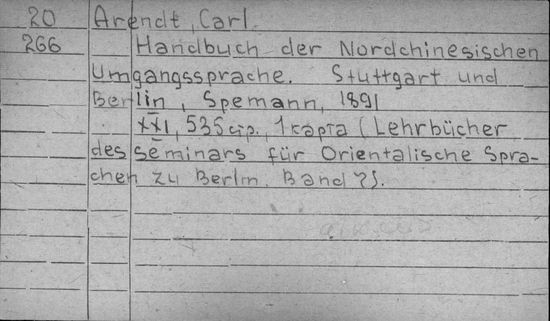 20 Arendt, Carl
266 Handbuch der Nordchinesischen
Umgangssprache. Stuttgart und
Berlin, Spemann, 1891
XXI, 535 стр., 1 карта (Lehrbücher
des Seminars für Orientalische Spra-
chen zu Berlin. Band